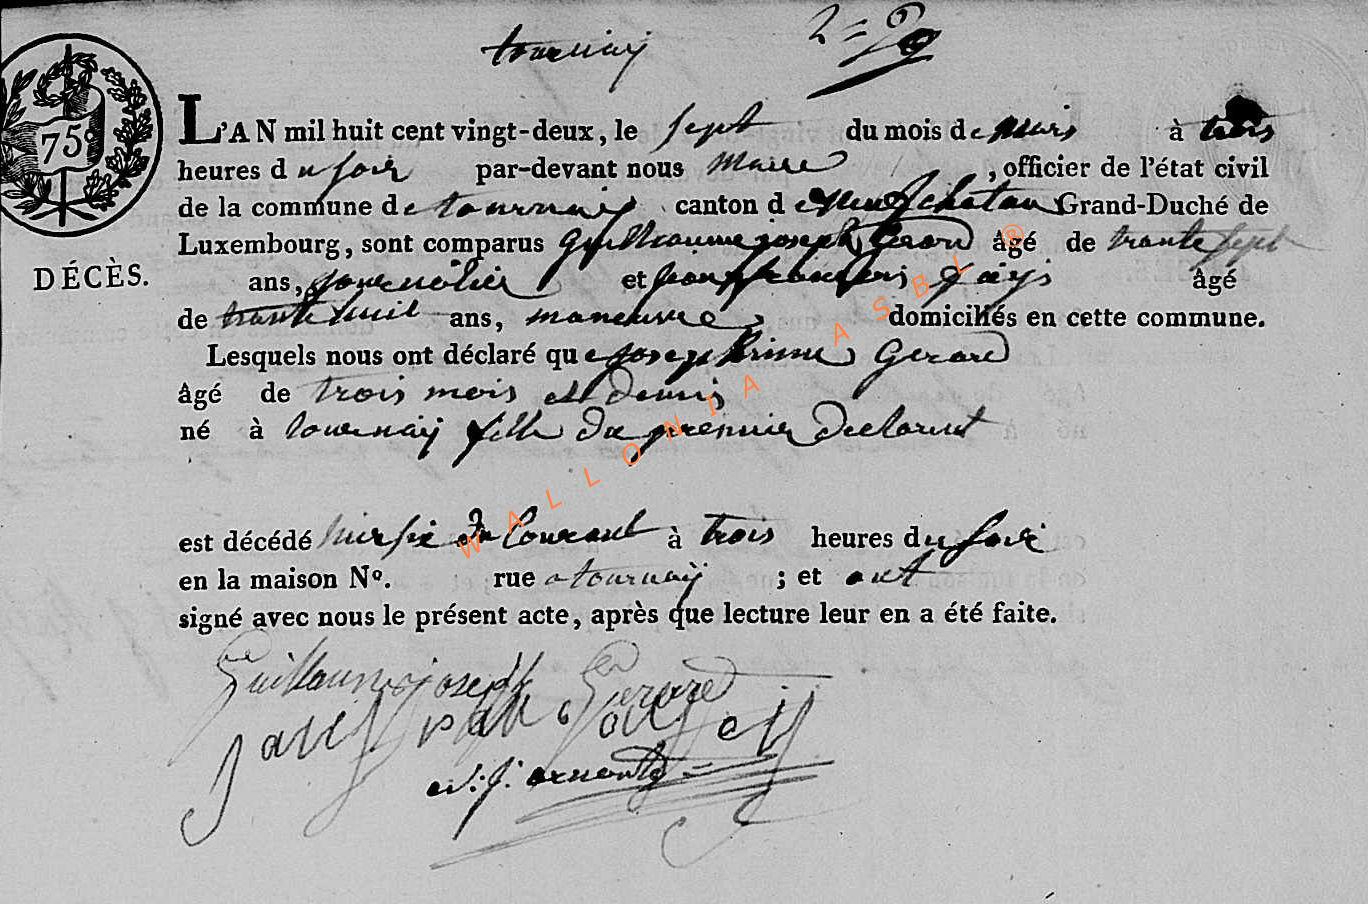 tournay 2=
75
L'AN mil huit cent vingt-deux, le sept du mois de mars à trois
heures du soir par-devant nous Maire , officier de l'état civil
de la commune de tournay canton de Neufchateau Grand-Duché de
Luxembourg, sont comparus Guilliaume joseph Gerard âgé de trante sept
DÉCÈS.
ans, journalier et jean françois âgé
de trante huit ans, maneuvre domiciliés en cette commune.
Lesquels nous ont déclaré que Gerard
âgé de trois mois et demis
né à tournaÿ fille du premier declarent
est décédé hier six du Courant à trois heures du soir
en la maison Nº. rue a tournaÿ ; et ont
signé avec nous le présent acte, après que lecture leur en a été faite.
Guillaume joseph Gerard
WALLONIA ASBL ®